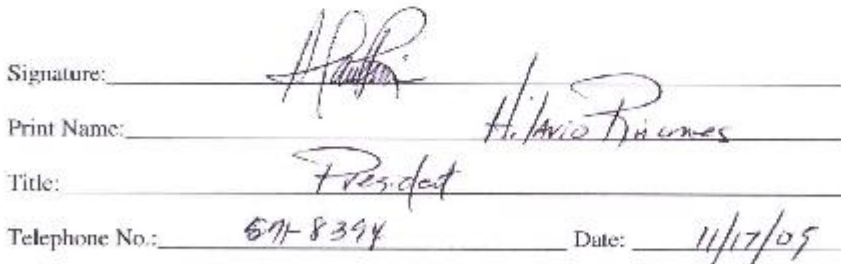 Signature:
Print Name: Hilario
Title: President
Telephone No.: 671-8394 Date: 11/17/05